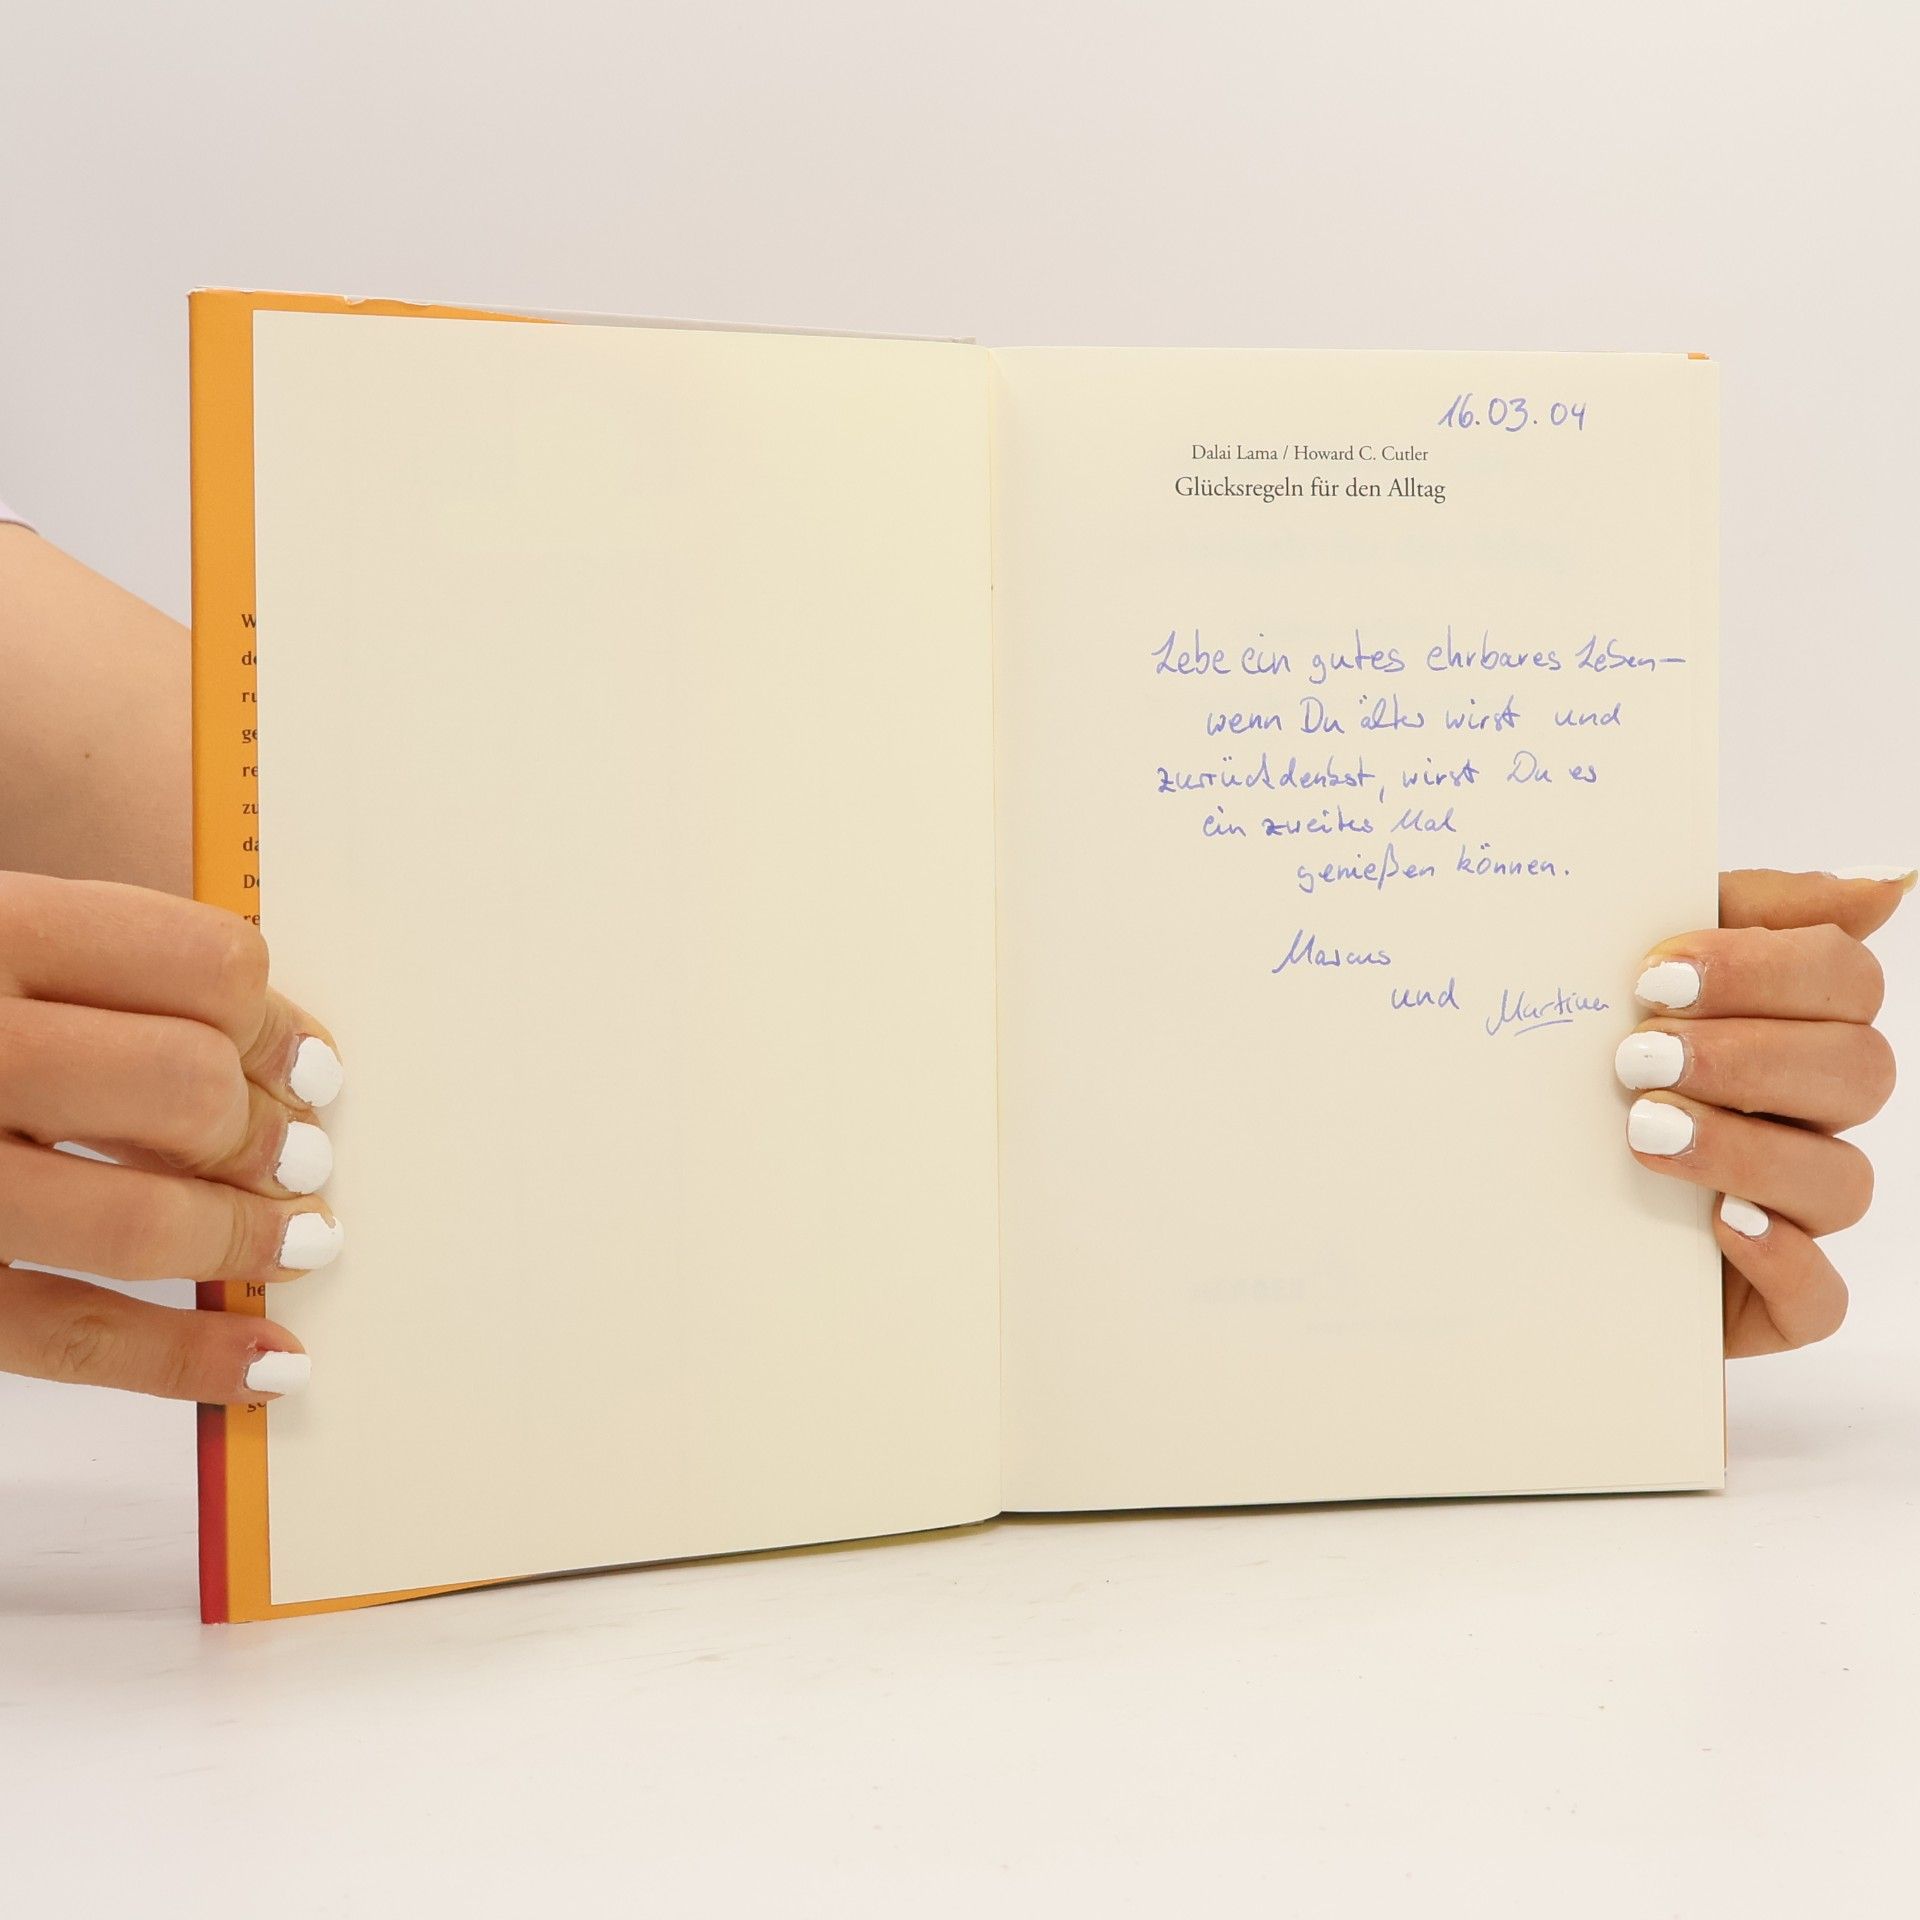 W
de
ru
ge
re
zu
da
De
re
he
ge
16.03.04
Dalai Lama / Howard C. Cutler
Glücksregeln für den Alltag
Lebe ein gutes ehrbares Leben –
wenn Du älter wirst und
zurückdenkst, wirst Du es
ein zweites Mal
genießen können.
Marcus
und Martina